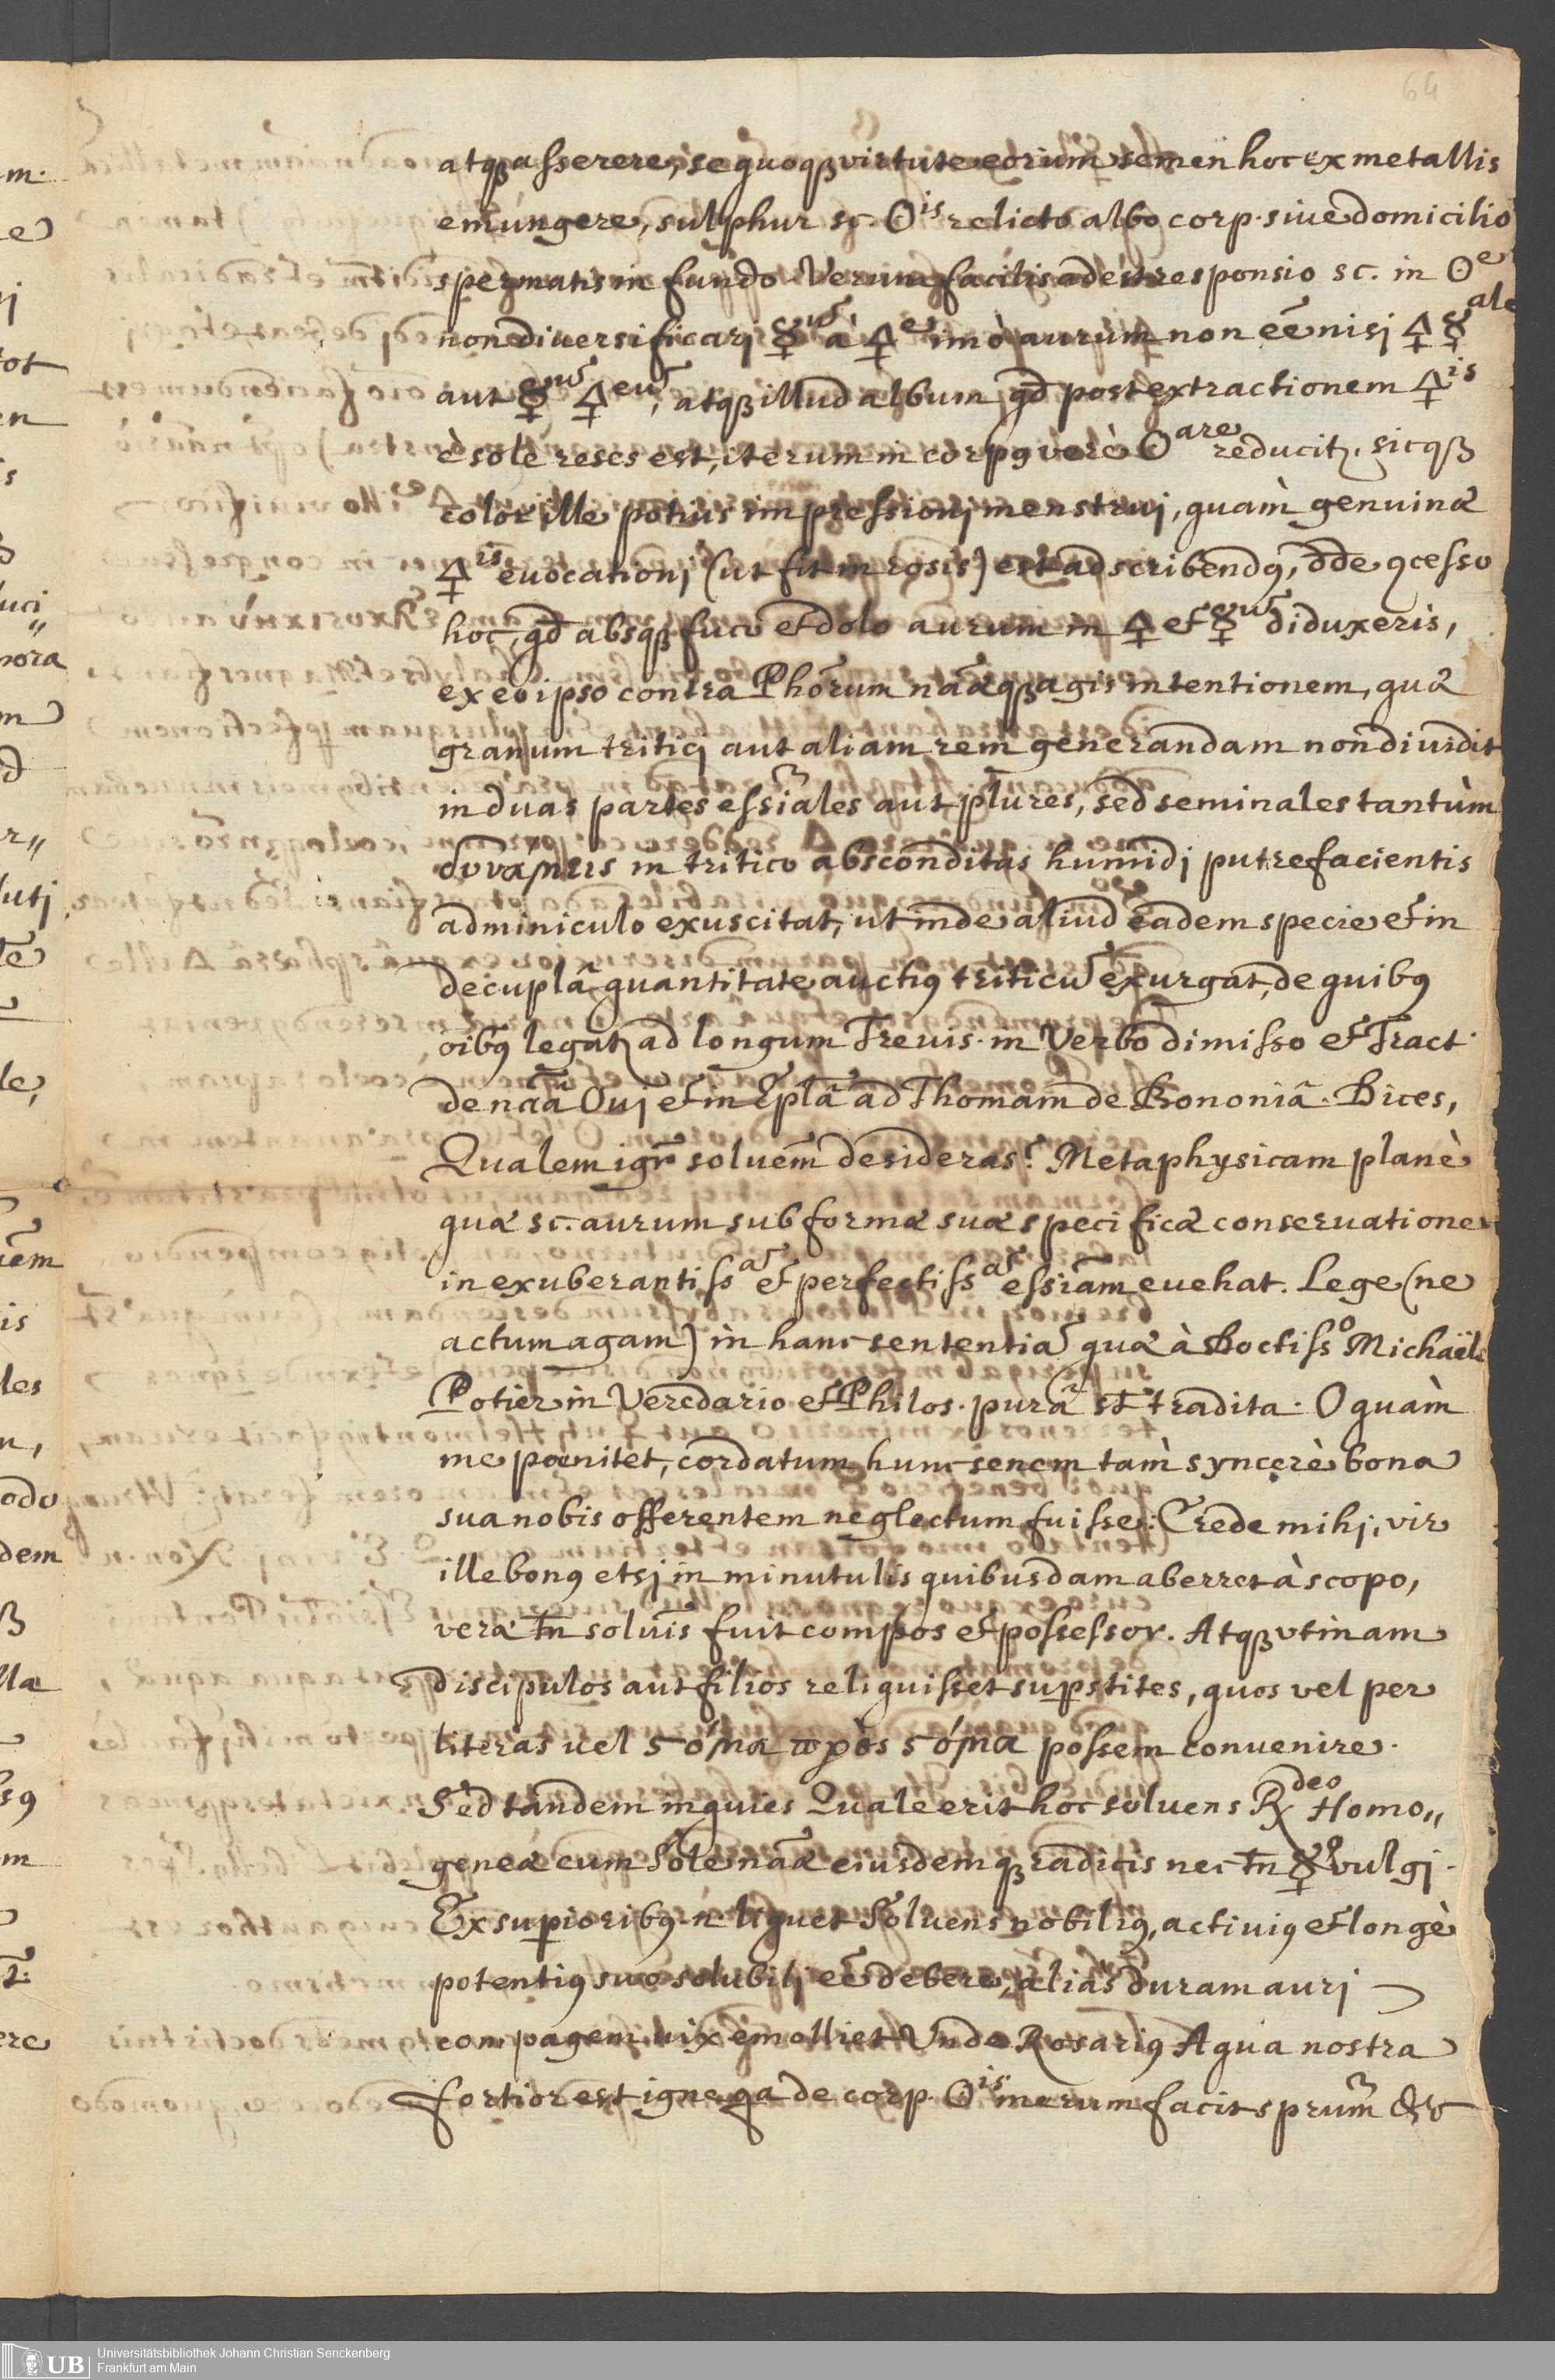 64
atqꝫ asserere, se quoqꝫ virtute eorum semen hoc ex metallis
emungere, sulphur sc. ☉is relicto albo corp. siue domicilio
spermatis in fundo Verum facilis adest responsio sc. in ☉e
non diuersificarj ☿um à 🜍e imò aurum non eē nisj 🜍 ☿ale
aut ☿um 🜍eum, atqꝫ illud album qd post extractionem 🜍is
è sole reses est, iterum in corpꝰ verè ☉are reducitʳ, sicqꝫ
color ille potius impressionj menstruj, quàm genuinæ
🜍is euocationj (ut fit in rosis) est adscribendꝰ, ꝯcesso
hoc, qd absqꝫ fuco et dolo aurum in 🜍 et ☿um diduxeris,
ex eo ipso contra Phōrum nāæqꝫ agis intentionem, quæ
granum triticj aut aliam rem generandam non diuidit
in duas partes essiāles aut plures, sed seminales tantùm
δυνάμεις in tritico absconditas humidj putrefacientis
adminiculo exuscitat, ut inde aliud eadem specie et in
decuplâ quantitate auctiꝰ triticū exurgat, de quibꝰ
oībꝰ legatʳ ad longum Treuis. in Verbo dimisso et Tract.
de naā Ouj et in Eplâ ad Thomam de Bononiâ. Dices,
Qualem igr̄ soluēm desideras? Metaphysicam planè
quæ sc. aurum sub formæ suæ specificæ conseruatione
in exuberantissam et perfectissam essiām euehat. Lege (ne
actum agam) in hanc sententiā quæ à Doctisso Michaële
Potier in Veredario et Philos. purā st tradita. O quàm
me pœnitet, cordatum hunc senem tam syncerè bona
sua nobis offerentem neglectum fuisse: Crede mihj, vir
ille bonꝰ etsj in minutulis quibusdam aberret à scopo,
veræ tn̄ soluīs fuit compos et possessor. Atqꝫ vtinam
discipulos aut filios reliquisset supstites, quos vel per
literas uel στόμα πρὸς στόμα possem conuenire.
Sed tandem inquies Quale erit hoc soluens ℞deo Homo„
geneæ cum Sole nāæ eiusdemqꝫ radicis nec tn̄ ☿o vulgj.
Ex supioribꝰ n. liquet Soluens nobiliꝰ, actiuiꝰ et longè
potentiꝰ suo solubilj eē debere, aliàs duram aurj
compagem uix emolliet Vnde Rosariꝰ Aqua nostra
fortior est igne qa de corp. ☉is merum facit sprūm &c
Universitätsbibliothek Johann Christian Senckenberg
Frankfurt am Main
UB